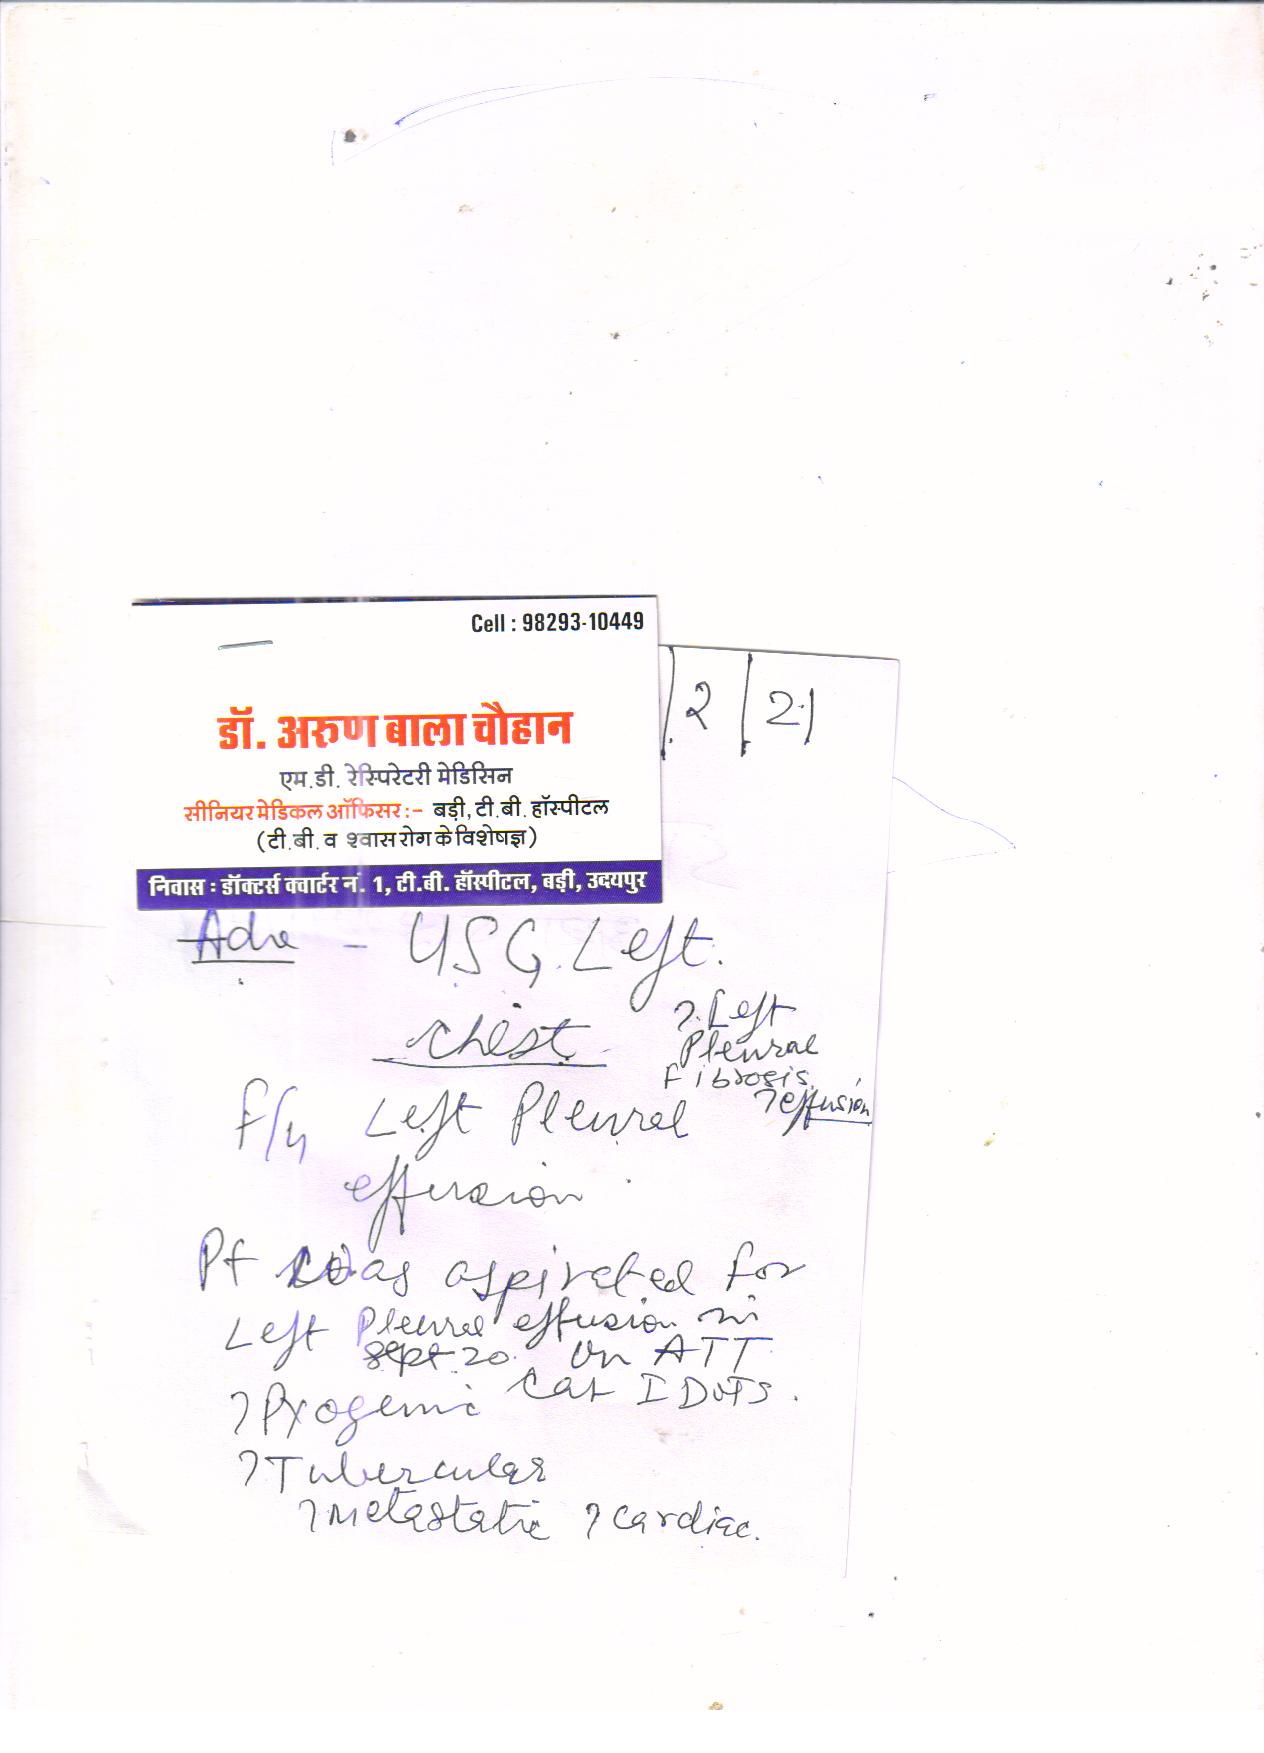 Cell : 98293-10449
डॉ. अरुण बाला चौहान
एम.डी. रेस्पिरेटरी मेडिसिन
सीनियर मेडिकल ऑफिसर :- बड़ी, टी.बी. हॉस्पीटल
(टी.बी. व श्वास रोग के विशेषज्ञ)
निवास : डॉक्टर्स क्वार्टर नं. 1, टी.बी. हॉस्पीटल, बड़ी, उदयपुर
/2/21
Adv - USG Left
chest
? Left
Pleural
Fibrosis
? effusion
F/u Left Pleural
effusion
Pt was aspirated for
Left Pleural effusion in
Sept 20. on ATT
Cat I DOTS.
? Pyogenic
? Tubercular
? Metastatic ? cardiac.